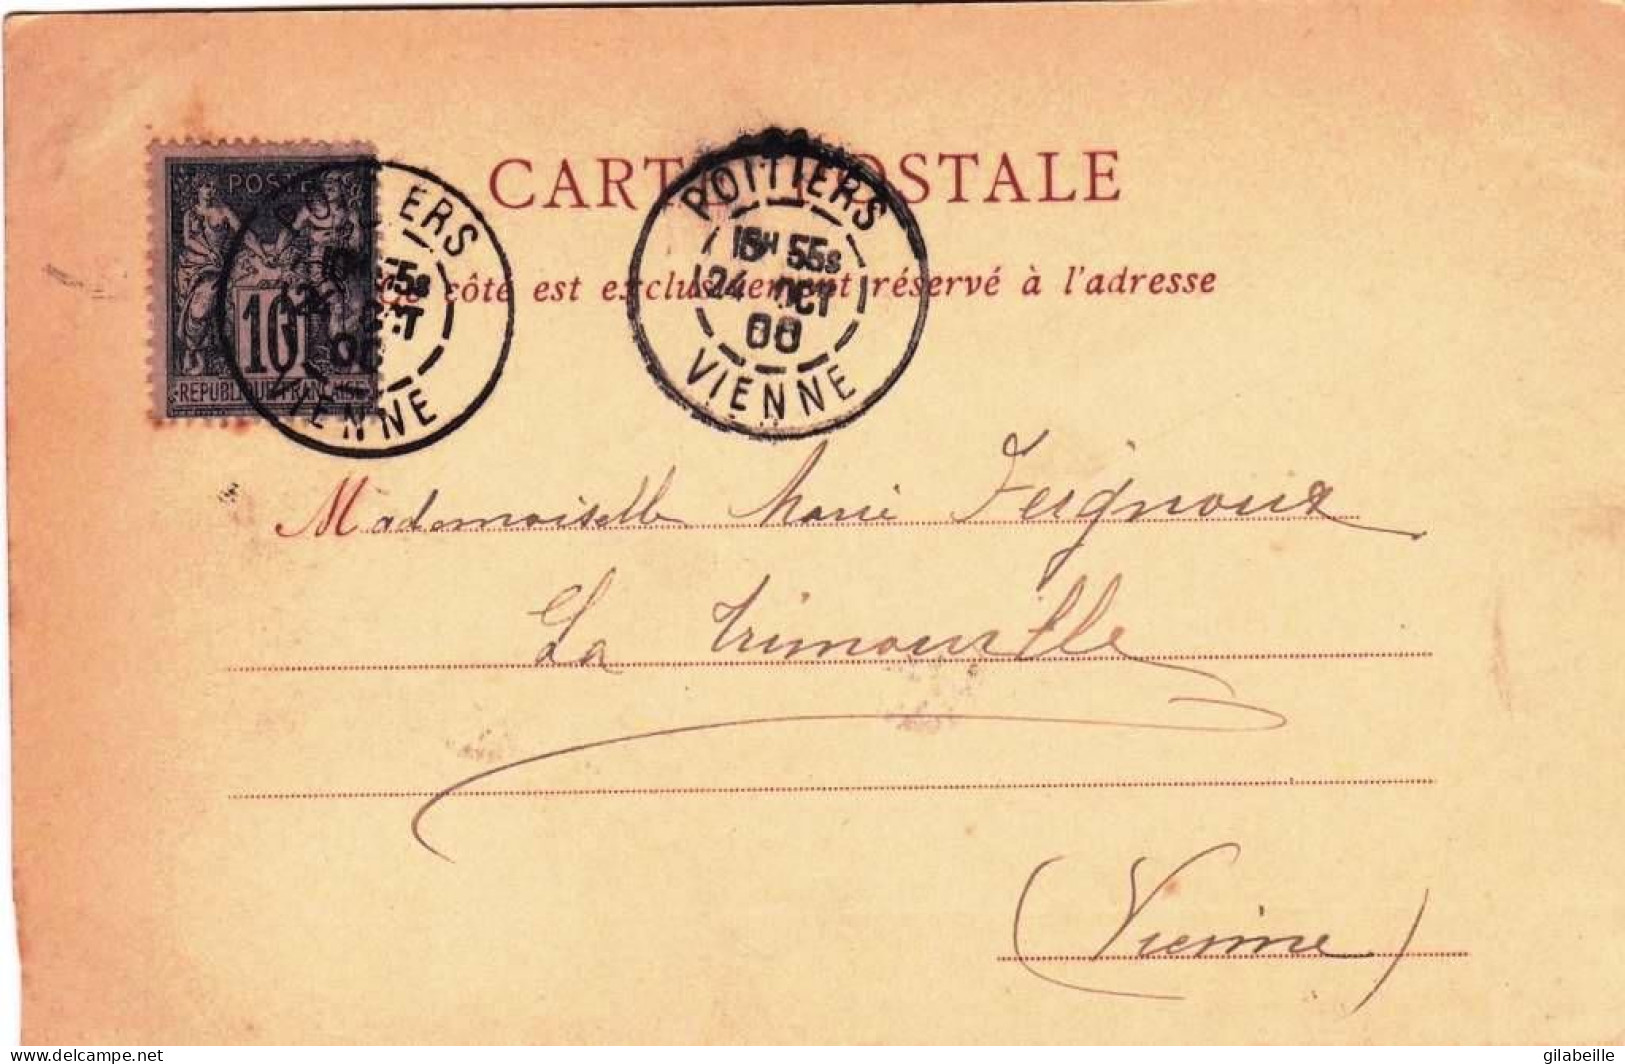 CARTE POSTALE
Ce côté est exclusivement réservé à l'adresse
POSTES
10
REPUBLIQUE FRANCAISE
POITIERS
VIENNE
POITIERS
55s
24 OCT
00
VIENNE
Mademoiselle Marie Feignoux
La Trimouille
(Vienne)
delcampe.net
gilabeille